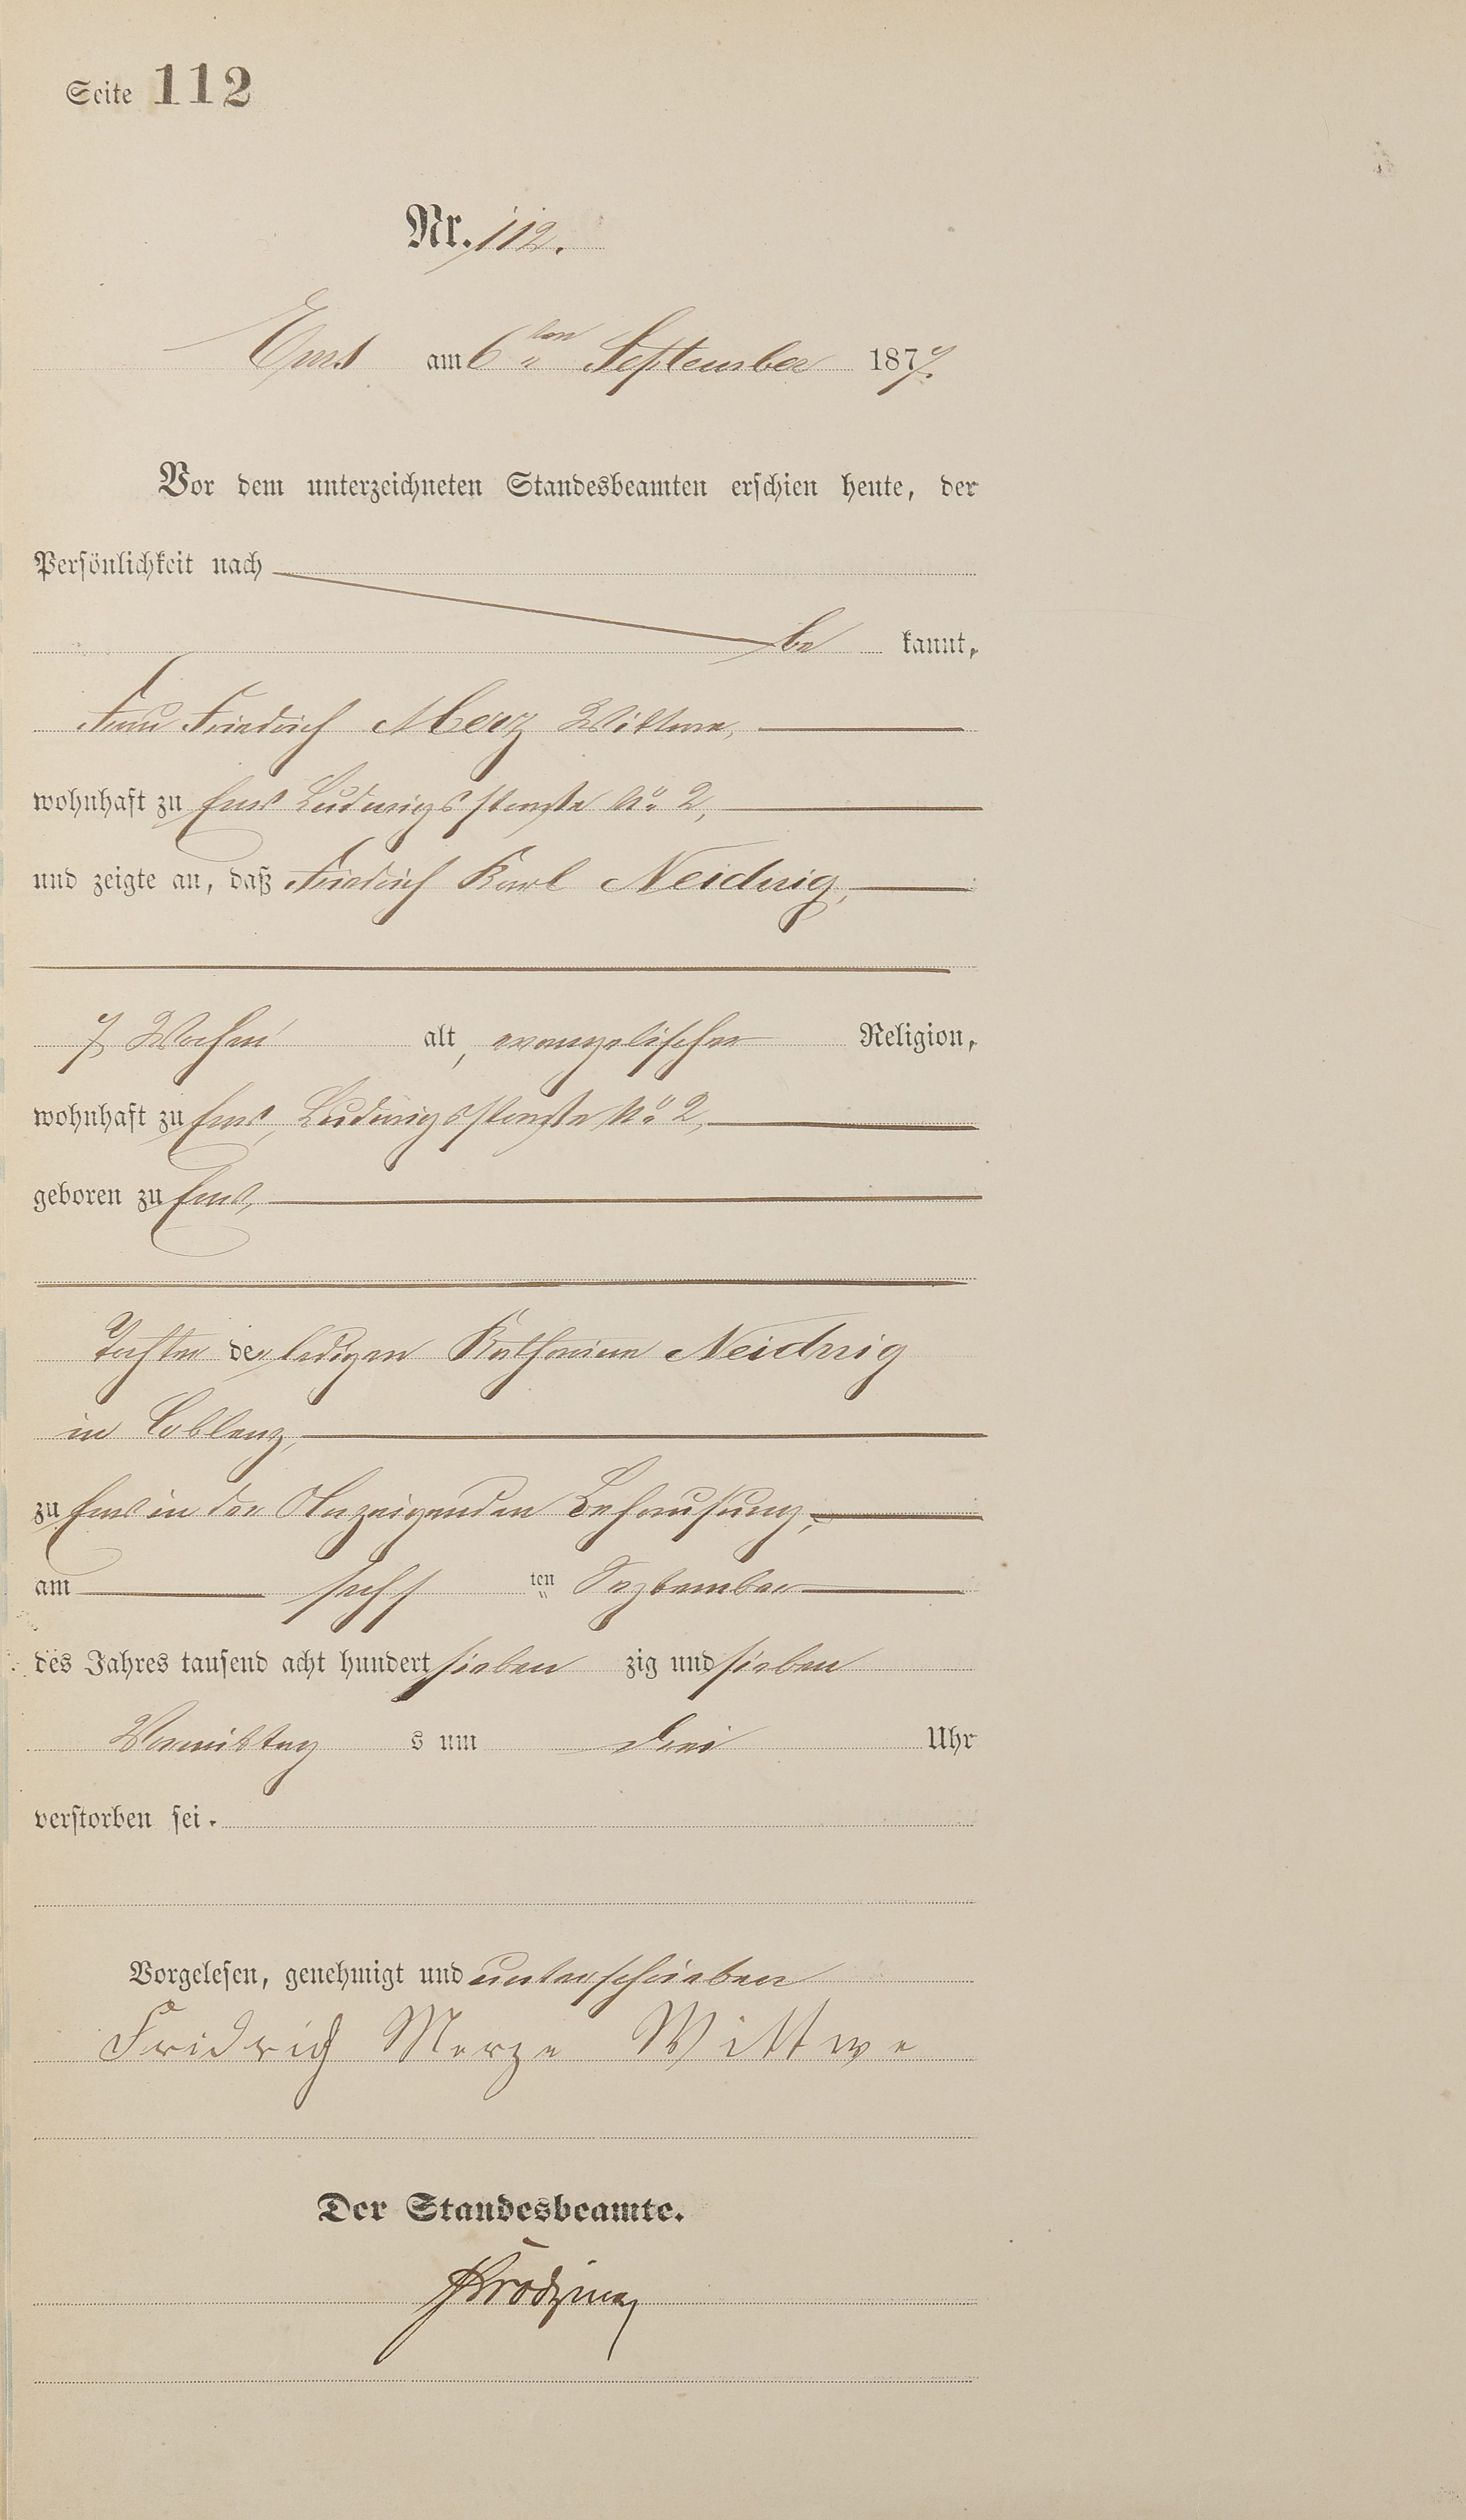 Seite 112
Nr. 112.
Ems am 6ten September 1877.
Vor dem unterzeichneten Standesbeamten erschien heute, der
Persönlichkeit nach
be kannt,
Frau Friedrich Merz Wittwe,
wohnhaft zu Ems Ludwigsstraße No. 2,
und zeigte an, daß Friedrich Karl Neidnig,
7 Wochen alt, evangelischer Religion,
wohnhaft zu Ems, Ludwigsstraße No. 2,
geboren zu Ems,
Tochter der ledigen Katharina Neidnig
in Coblenz,
zu Ems in der Anzeigenden Behausung,
am sechsten September
des Jahres tausend acht hundert sieben zig und sieben
Vormittags um drei Uhr
verstorben sei.
Vorgelesen, genehmigt und unterschrieben
Fridrich Merze Wittwe
Der Standesbeamte.